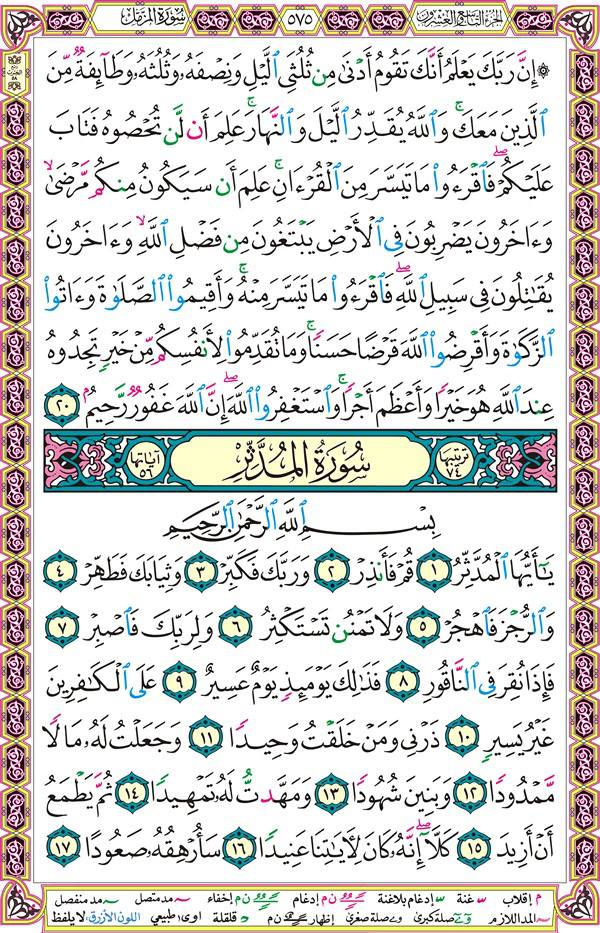 الجزء التاسع والعشرون
٥٧٥
سورة المزمل
۞ إِنَّ رَبَّكَ يَعْلَمُ أَنَّكَ تَقُومُ أَدْنَىٰ مِن ثُلُثَيِ ٱلَّيْلِ وَنِصْفَهُۥ وَثُلُثَهُۥ وَطَآئِفَةٌ مِّنَ
ٱلَّذِينَ مَعَكَ ۚ وَٱللَّهُ يُقَدِّرُ ٱلَّيْلَ وَٱلنَّهَارَ ۚ عَلِمَ أَن لَّن تُحْصُوهُ فَتَابَ
عَلَيْكُمْ ۖ فَٱقْرَءُوا۟ مَا تَيَسَّرَ مِنَ ٱلْقُرْءَانِ ۚ عَلِمَ أَن سَيَكُونُ مِنكُم مَّرْضَىٰ ۙ
وَءَاخَرُونَ يَضْرِبُونَ فِى ٱلْأَرْضِ يَبْتَغُونَ مِن فَضْلِ ٱللَّهِ ۙ وَءَاخَرُونَ
يُقَـٰتِلُونَ فِى سَبِيلِ ٱللَّهِ ۖ فَٱقْرَءُوا۟ مَا تَيَسَّرَ مِنْهُ ۚ وَأَقِيمُوا۟ ٱلصَّلَوٰةَ وَءَاتُوا۟
ٱلزَّكَوٰةَ وَأَقْرِضُوا۟ ٱللَّهَ قَرْضًا حَسَنًا ۚ وَمَا تُقَدِّمُوا۟ لِأَنفُسِكُم مِّنْ خَيْرٍ تَجِدُوهُ
عِندَ ٱللَّهِ هُوَ خَيْرًا وَأَعْظَمَ أَجْرًا ۚ وَٱسْتَغْفِرُوا۟ ٱللَّهَ ۖ إِنَّ ٱللَّهَ غَفُورٌ رَّحِيمٌۢ ٢٠
ترتيبها ٧٤ سُورَةُ المُدَّثِّرِ آياتها ٥٦
بِسْمِ ٱللَّهِ ٱلرَّحْمَـٰنِ ٱلرَّحِيمِ
يَـٰٓأَيُّهَا ٱلْمُدَّثِّرُ ١ قُمْ فَأَنذِرْ ٢ وَرَبَّكَ فَكَبِّرْ ٣ وَثِيَابَكَ فَطَهِّرْ ٤
وَٱلرُّجْزَ فَٱهْجُرْ ٥ وَلَا تَمْنُن تَسْتَكْثِرُ ٦ وَلِرَبِّكَ فَٱصْبِرْ ٧
فَإِذَا نُقِرَ فِى ٱلنَّاقُورِ ٨ فَذَٰلِكَ يَوْمَئِذٍ يَوْمٌ عَسِيرٌ ٩ عَلَى ٱلْكَـٰفِرِينَ
غَيْرُ يَسِيرٍ ١٠ ذَرْنِى وَمَنْ خَلَقْتُ وَحِيدًا ١١ وَجَعَلْتُ لَهُۥ مَالًا
مَّمْدُودًا ١٢ وَبَنِينَ شُهُودًا ١٣ وَمَهَّدتُّ لَهُۥ تَمْهِيدًا ١٤ ثُمَّ يَطْمَعُ
أَنْ أَزِيدَ ١٥ كَلَّآ ۖ إِنَّهُۥ كَانَ لِـَٔايَـٰتِنَا عَنِيدًا ١٦ سَأُرْهِقُهُۥ صَعُودًا ١٧
م إقلاب غنة إدغام بلاغنة ن م إدغام ن م إخفاء مد متصل مد منفصل
المد اللازم صلة كبرى صلة صغرى إظهار ن م قلقلة اوى طبيعي اللون الأزرق: لا يلفظ